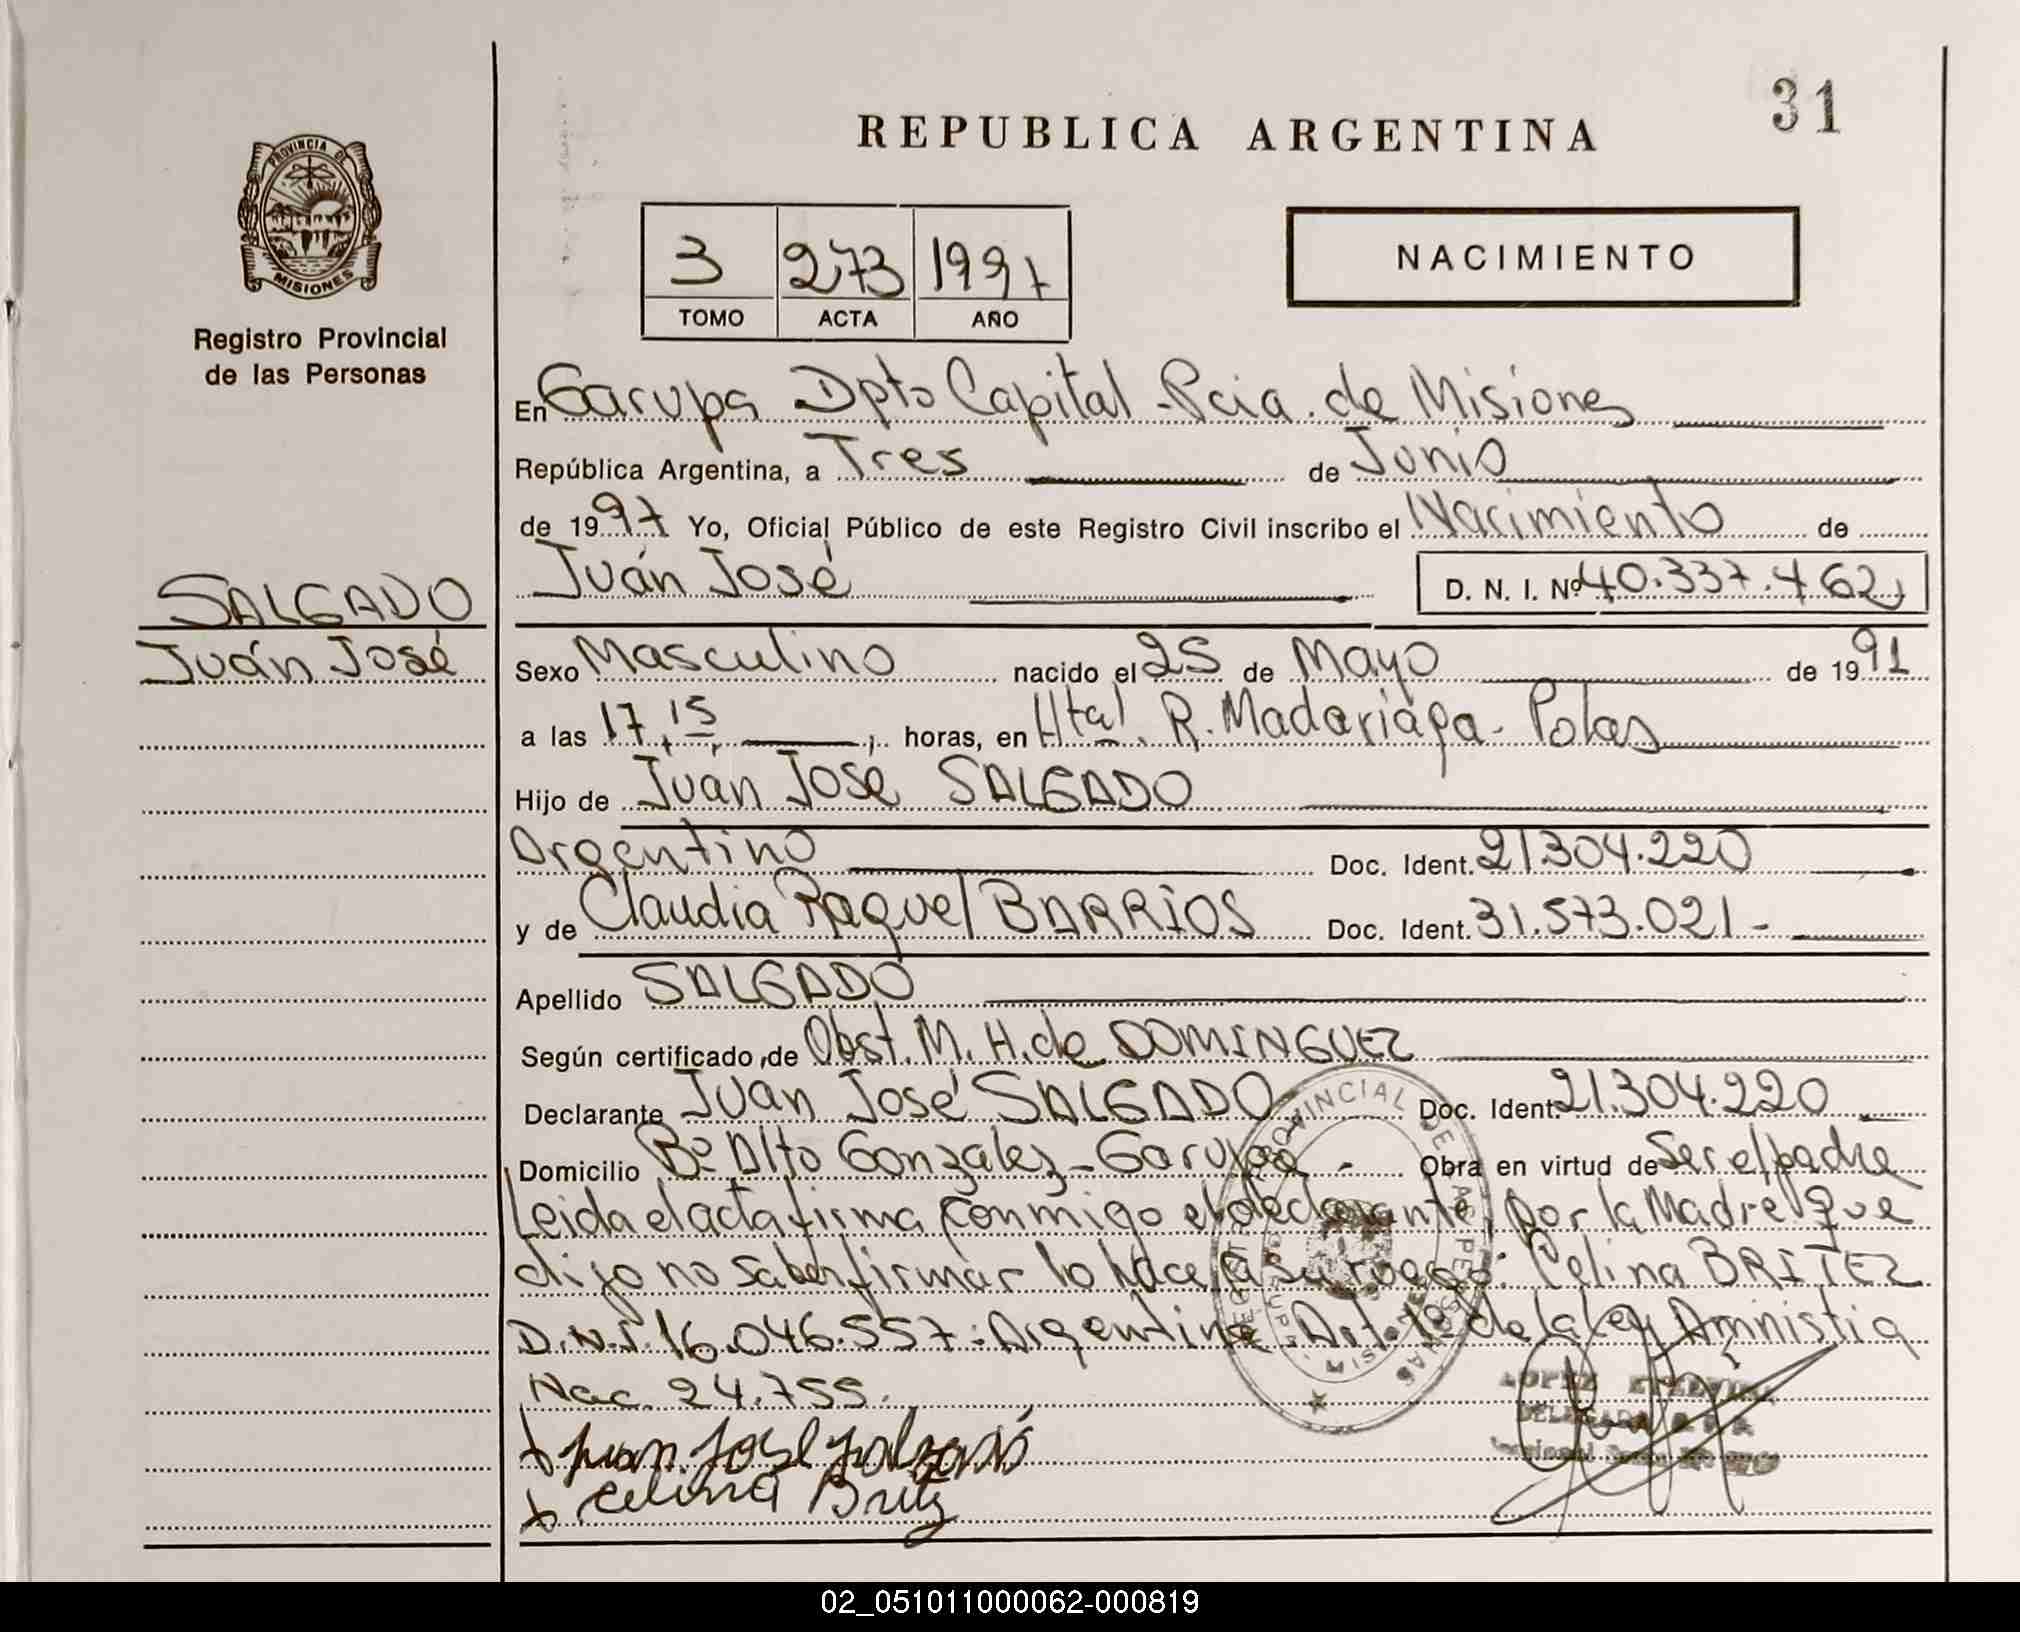 31
REPUBLICA ARGENTINA
PROVINCIA DE
MISIONES
Registro Provincial
de las Personas
3 273 1997
TOMO ACTA AÑO
NACIMIENTO
En Garupa Dpto Capital - Pcia. de Misiones
República Argentina, a Tres de Junio
de 1997 Yo, Oficial Público de este Registro Civil inscribo el Nacimiento de
Juán José D. N. I. Nº 40.337.462
SALGADO
Juán José
Sexo Masculino nacido el 25 de Mayo de 1991
a las 17,15, horas, en Htal. R. Madariaga - Pdas
Hijo de Juán José SALGADO
Argentino Doc. Ident. 21.304.220
y de Claudia Raquel BARRIOS Doc. Ident. 31.573.021-
Apellido SALGADO
Según certificado de Obst. M. H. de DOMINGUEZ
Declarante Juan José SALGADO Doc. Ident. 21.304.220
Domicilio Bº Alto Gonzalez - Garupa - Obra en virtud de Ser el padre
Leida el acta firma conmigo el declarante, por la Madre que
dijo no saber firmar lo hace a su ruego: Celina BRITEZ
D.N.I. 16.046.557: Argentina. Art. 1º de la ley Amnistia
Nac. 24.755.
LOPEZ ETELVINA
DELEGADA
x Juan José Salgado
x Celina Britez
02_051011000062-000819